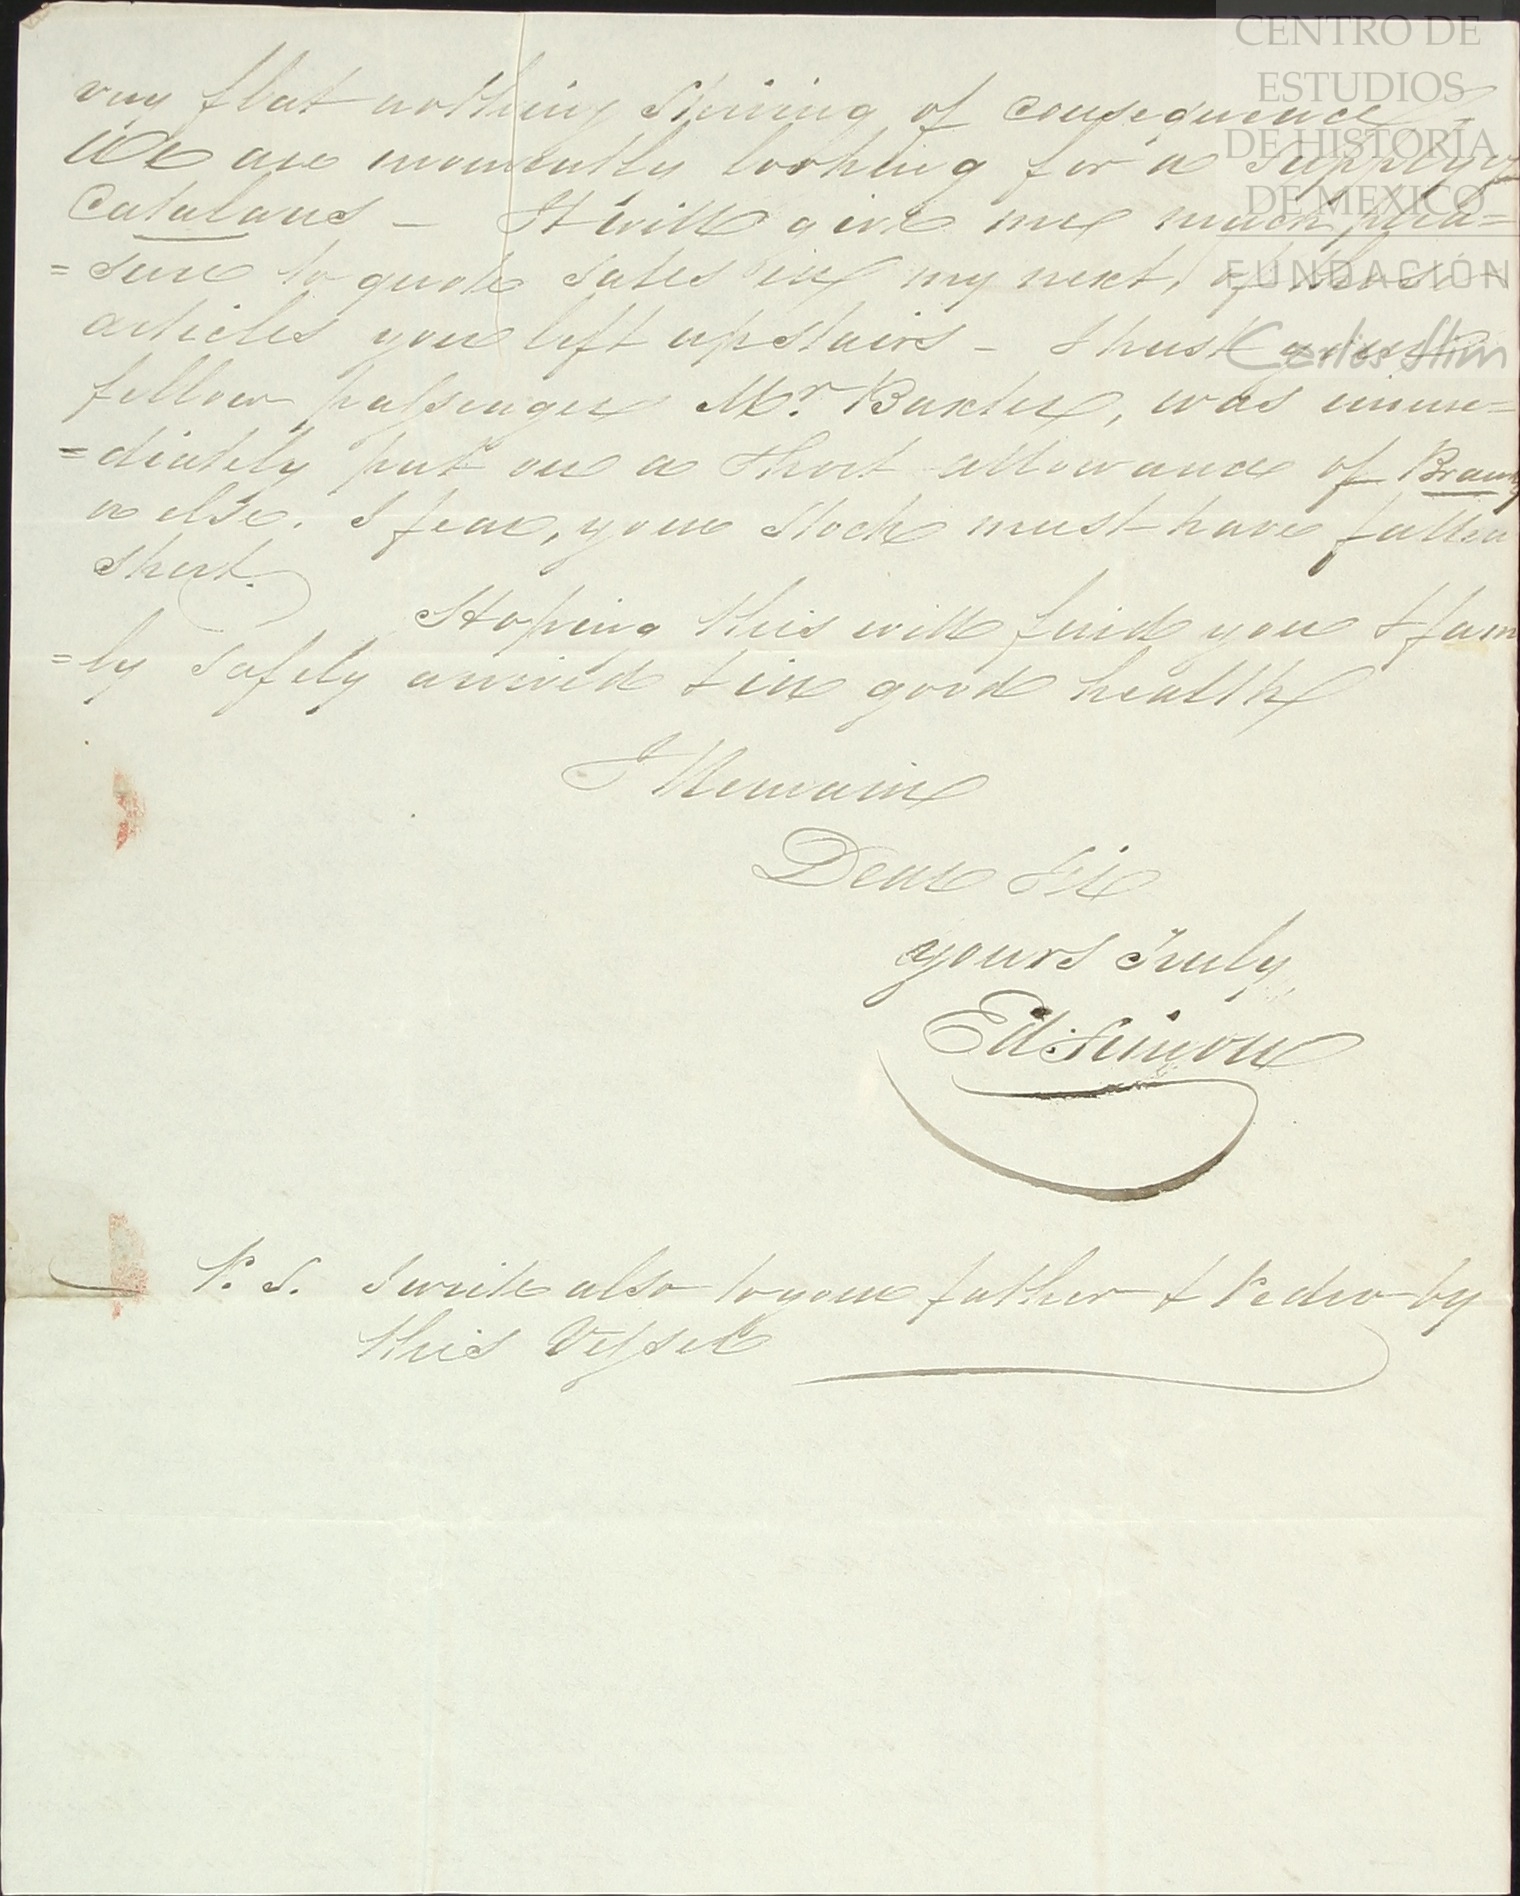 very flat nothing stirring of consequence
We are momently looking for a supply of
Catalans – It will give me much plea=
=sure to quote sales in my next, of those
articles you left upstairs – I trust your
fellow passenger Mr. Baxter, was imme=
=diately put on a short allowance of Brandy
or else. I fear, your stock must have fallen
short.
Hoping this will find you & fam
=ly safely arrived & in good health
I Remain
Dear Sir
yours truly
Ed Simon
P.S. I write also to your father & Pedro by
this Vessel
CENTRO DE
ESTUDIOS
DE HISTORIA
DE MEXICO
FUNDACIÓN
Carlos Slim